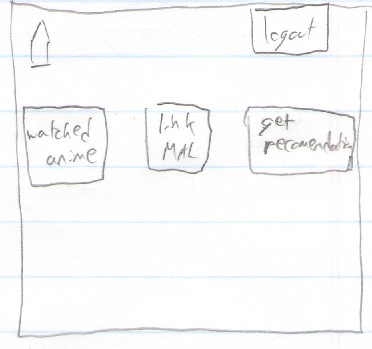 logout
watched
anime
link
MAL
get
recomendation